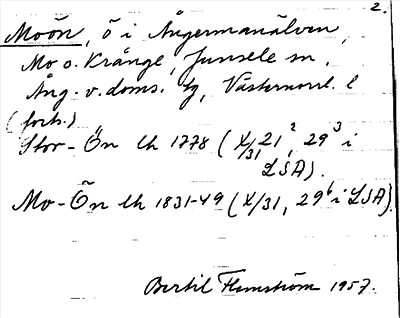 2.
Moön, ö i Ångermanälven,
Mo o. Krånge, Junsele sn,
Ång. v. doms. tg, Västernorrl. l
(forts.)
Stor-Ön lh 1778 (X/31 21², 29³ i
LSA).
Mo-Ön lh 1831-49 (X/31, 29⁶ i LSA).
Bertil Flemström 1957.